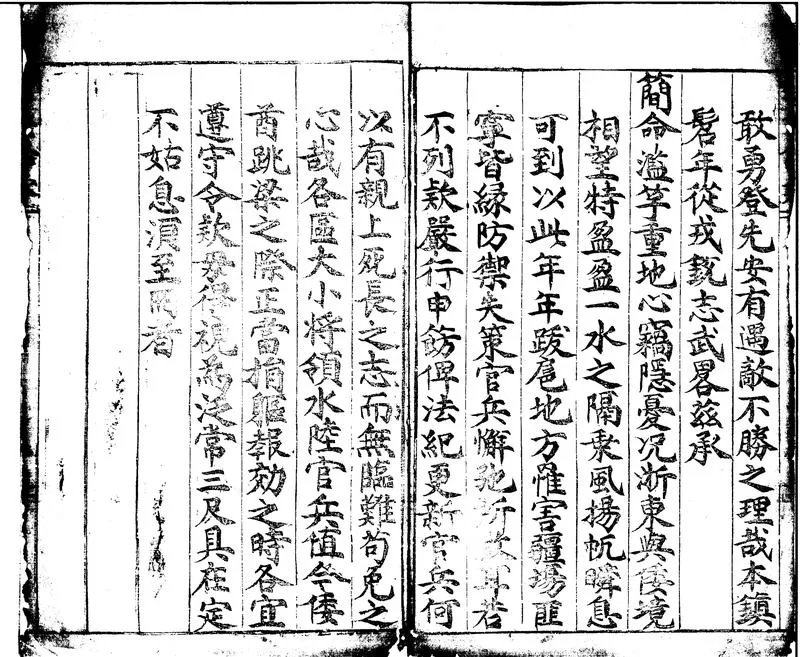 敢勇登先安有遇敵不勝之理哉本鎮
髫年從戎銳志武畧茲承
簡命濫竽重地心竊隱憂況浙東與倭境
相望特盈盈一水之隔乘風揚帆瞬息
可到以此年年跋扈地方罹害疆場匪
寧皆緣防禦失策官兵懈弛所致耳若
不列款嚴行申飭俾法紀更新官兵何
以有親上死長之志而無臨難苟免之
心哉各區大小將領水陸官兵值今倭
酋跳梁之際正當捐軀報効之時各宜
遵守令款毋得視爲泛常三尺具在定
不姑息須至冊者